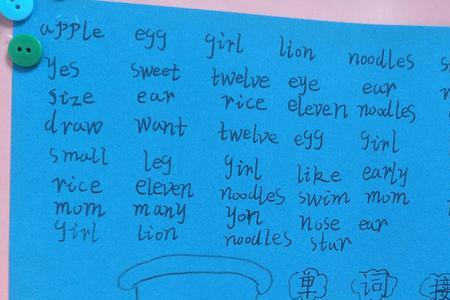 apple egg girl lion noodles
yes sweet twelve eye ear
size ear rice eleven noodles
draw want twelve egg girl
small leg girl like early
rice eleven noodles swim mom
mom many yon nose ear
girl lion noodles star
单 词 接